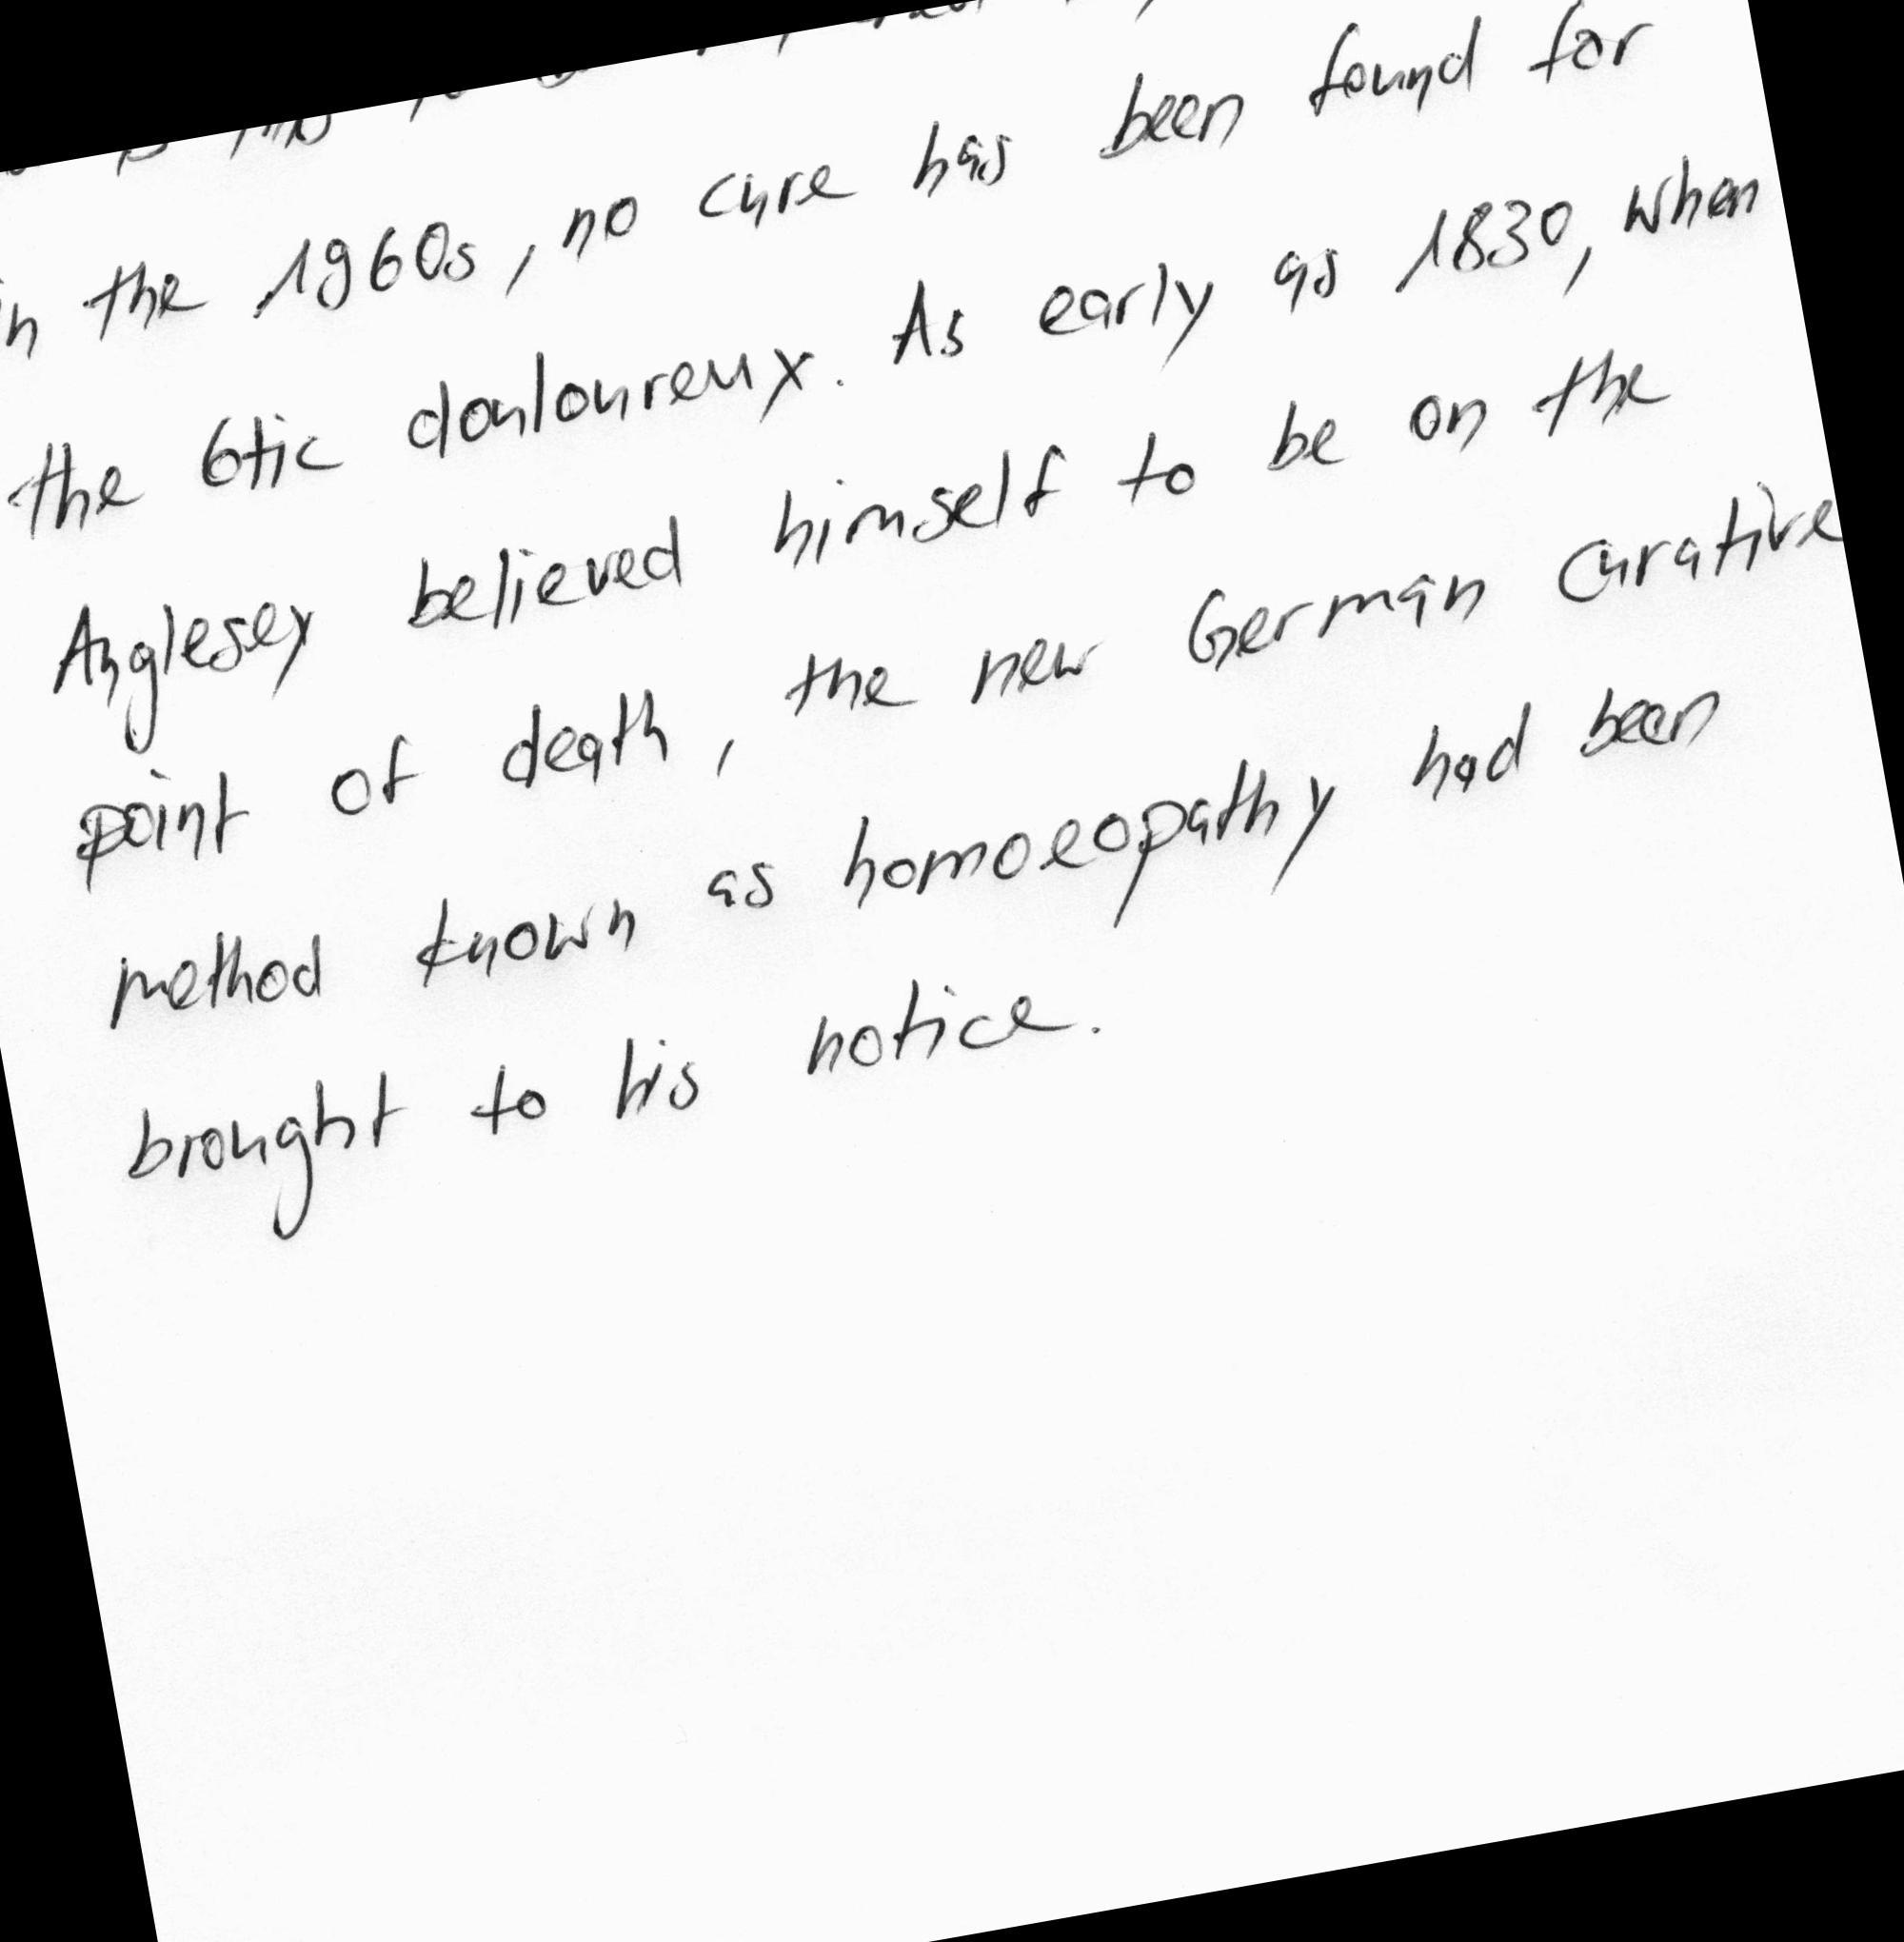 in the 1960s, no cure has been found for
the 6tic douloureux. As early as 1830, when
Anglesey believed himself to be on the
point of death, the new German curative
method known as homoeopathy had been
brought to his notice.